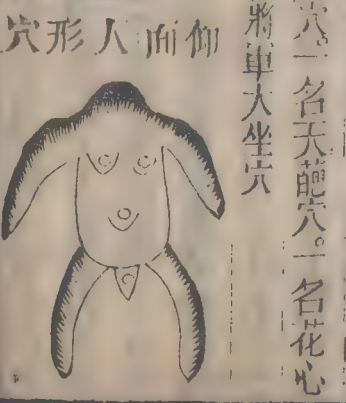 穴。一名天葩穴。一名花心
將軍大坐穴
仰面人形穴